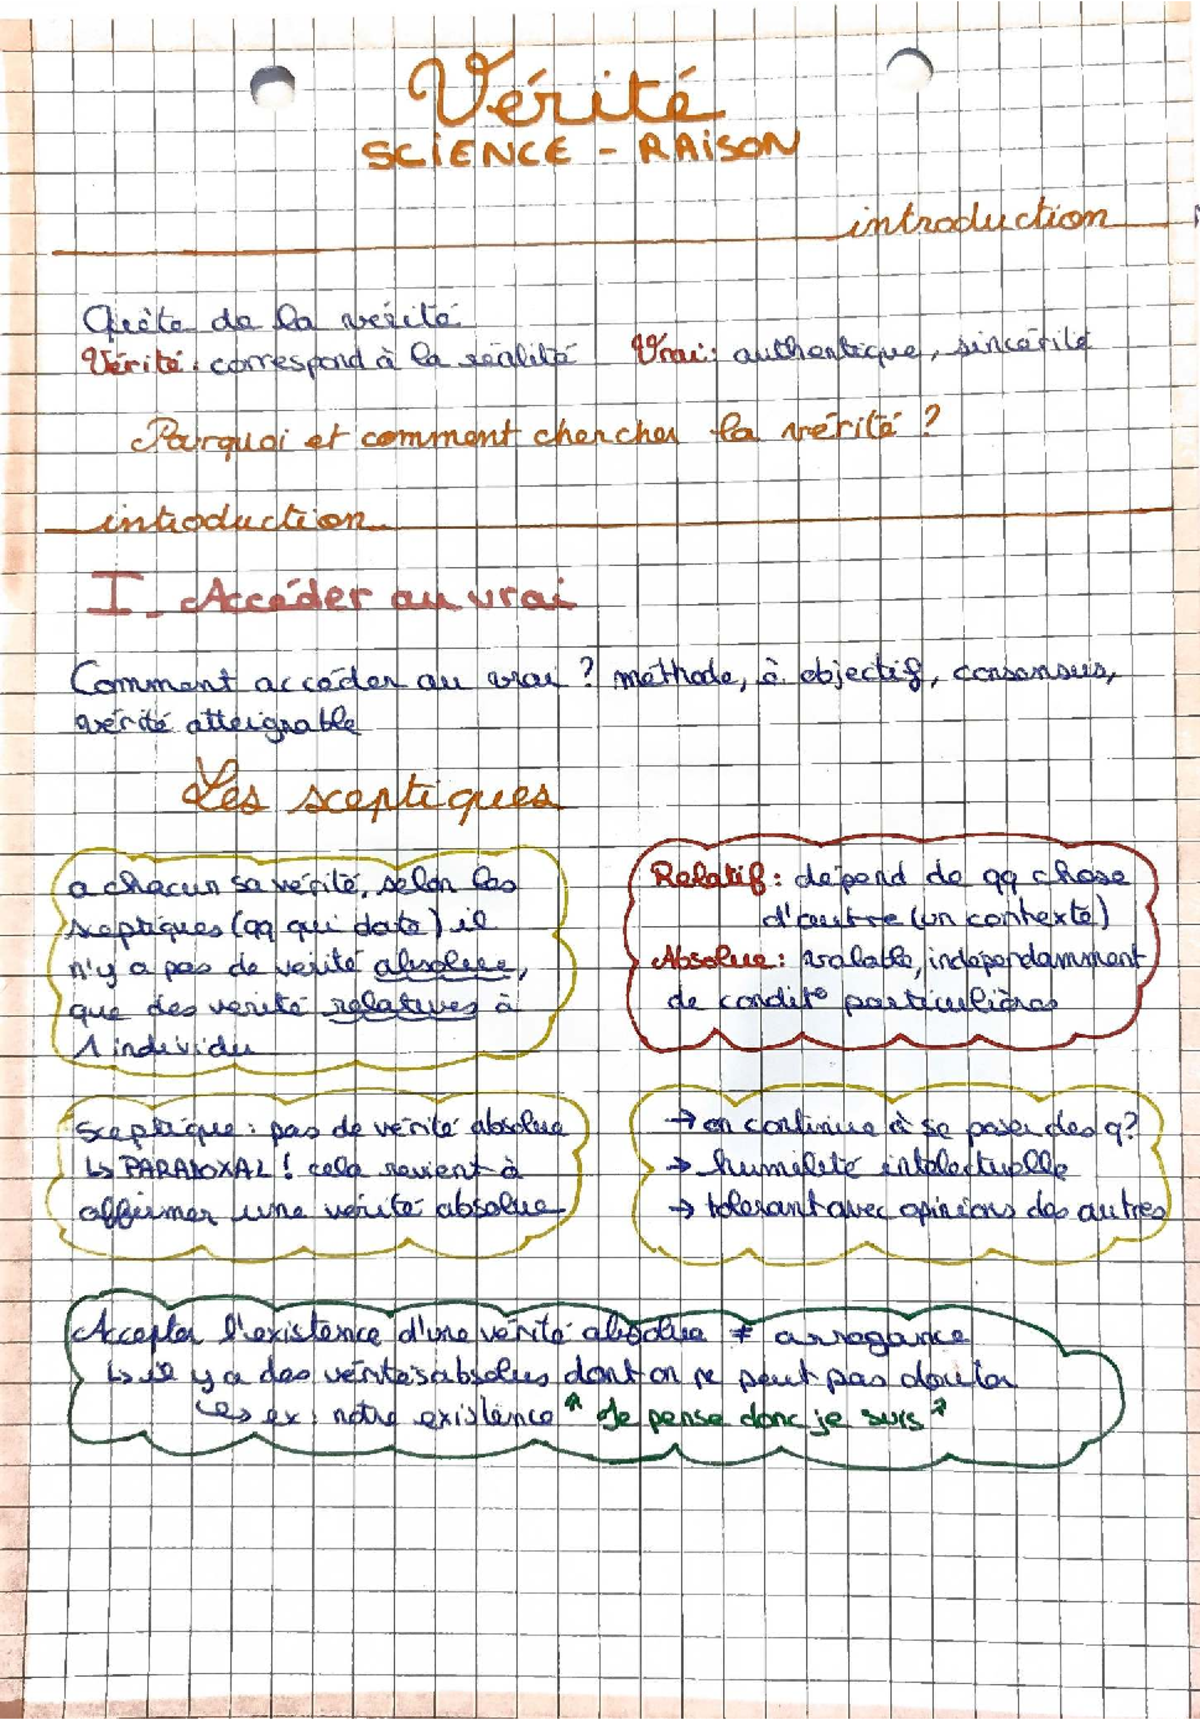 Vérité
SCIENCE - RAISON
introduction
Quête de la vérité
Vérité : correspond à la réalité Vrai : authentique, sincérité
Pourquoi et comment chercher la vérité ?
introduction
I. Accéder au vrai
Comment accéder au vrai ? méthode, ê objectif, consensus,
vérité atteignable
Les sceptiques
a chacun sa vérité, selon les
sceptiques (qq qui doute) il
n'y a pas de vérité absolue,
que des verité relatives à
1 individu
Relatif : dépend de qq chose
d'autre (un contexte)
Absolue : valable, indépendamment
de condit° particulières
Sceptique : pas de vérité absolue
↳ PARADOXAL ! cela revient à
affirmer une vérité absolue
→ on continue à se poser des q?
→ humilité intelectuelle
→ tolerant avec opinions des autres
Accepter l'existence d'une vérité absolue ≠ arrogance
↳ il y a des véritésabsolues dont on ne peut pas douter
↳ ex : notre existence "Je pense donc je suis"